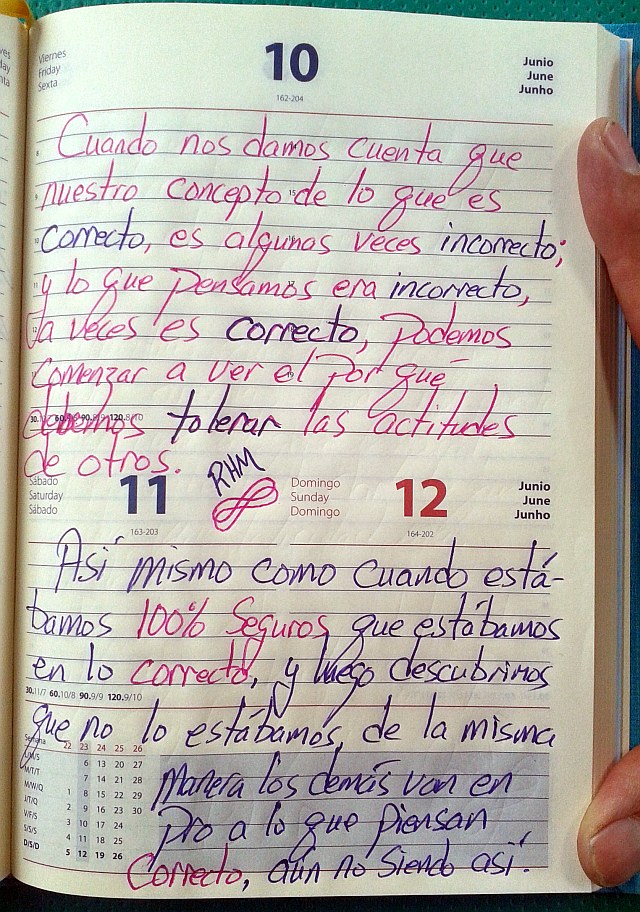 Viernes
Friday
Sexta
10
162-204
Junio
June
Junho
Cuando nos damos cuenta que
nuestro concepto de lo que es
correcto, es algunas veces incorrecto;
y lo que pensamos era incorrecto,
a veces es correcto, podemos
comenzar a ver el por qué
debemos tolerar las actitudes
de otros.
RHM
Sábado
Saturday
Sábado
11
163-203
Domingo
Sunday
Domingo
12
164-202
Junio
June
Junho
Así mismo como cuando está-
bamos 100% Seguros que estábamos
en lo correcto, y luego descubrimos
30.11/7 60.10/8 90.9/9 120.9/10
que no lo estábamos, de la misma
Manera los demás van en
pro a lo que piensan
Correcto, aún no siendo así.
Semana 22 23 24 25 26
L/M/S 6 13 20 27
M/T/T 7 14 21 28
M/W/Q 1 8 15 22 29
J/T/Q 2 9 16 23 30
V/F/S 3 10 17 24
S/S/S 4 11 18 25
D/S/D 5 12 19 26